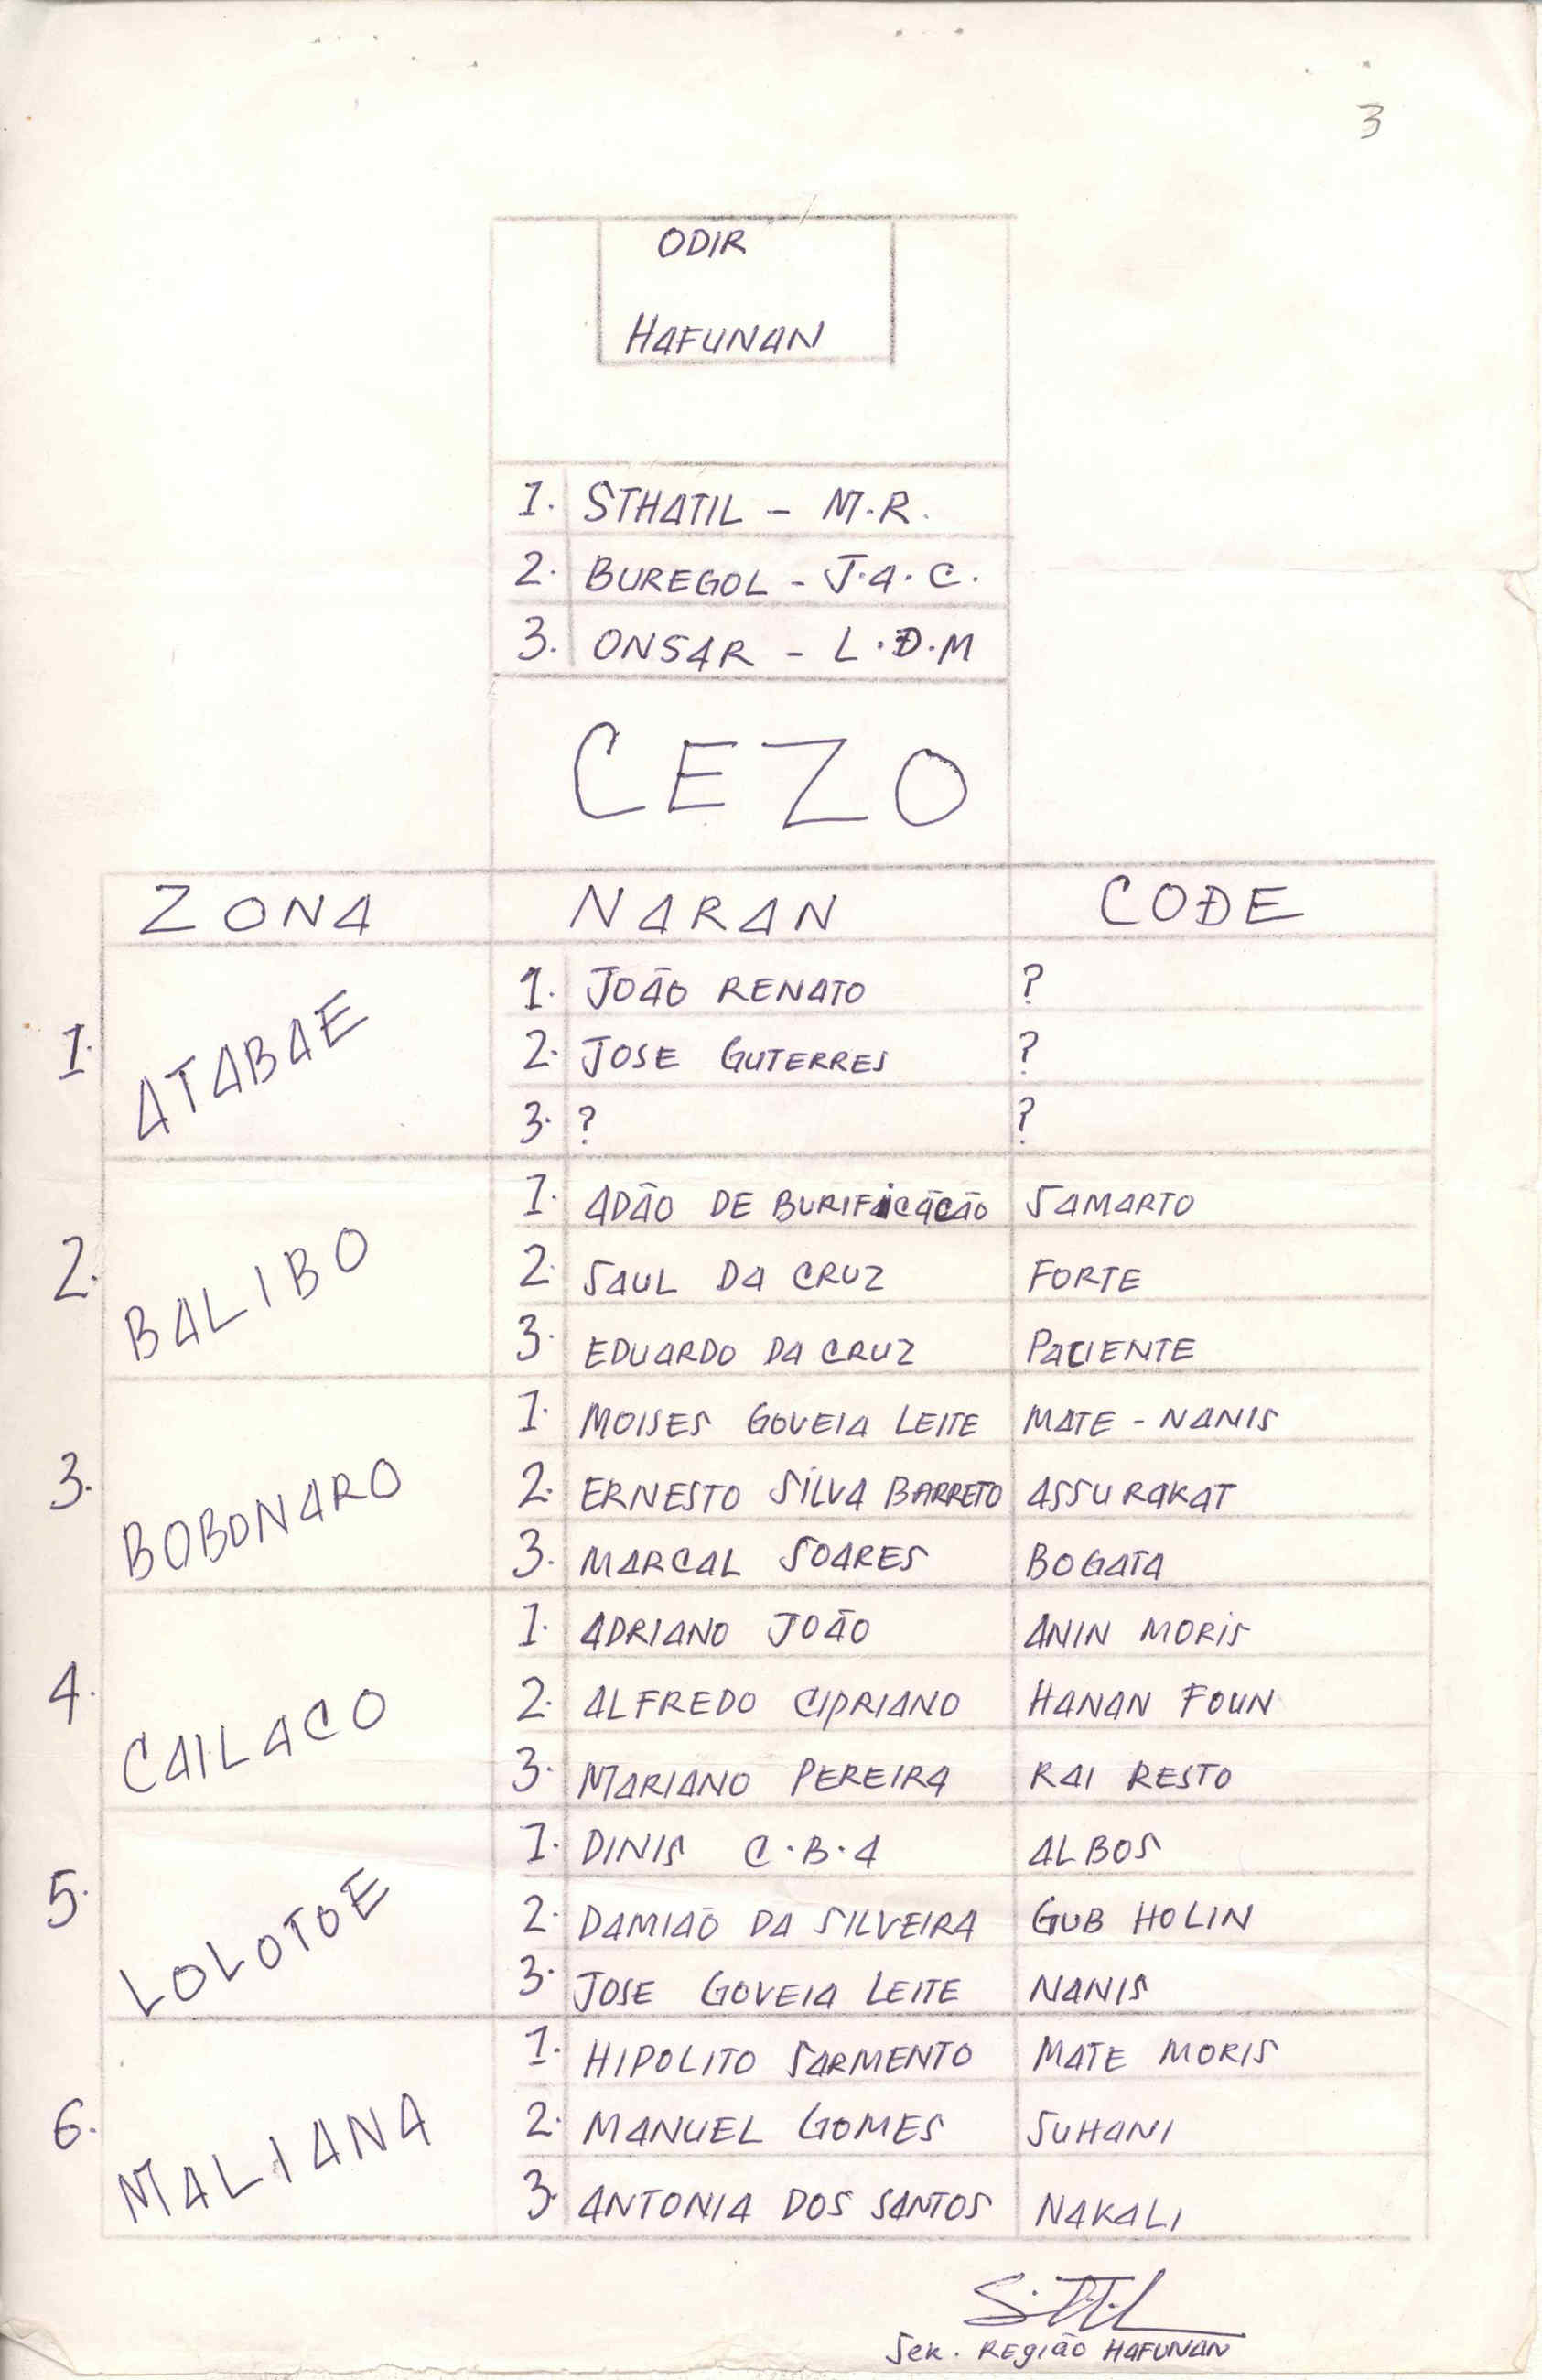 3
ODIR
HAFUNAN
1. STHATIL - M.R.
2. BUREGOL - J.A.C.
3. ONSAR - L.Đ.M
CEZO
ZONA NARAN COĐE
1. ATABAE
1. JOÃO RENATO ?
2. JOSE GUTERRES ?
3. ? ?
2. BALIBO
1. ADÃO DE BURIFICAÇÃO SAMARTO
2. SAUL DA CRUZ FORTE
3. EDUARDO DA CRUZ PACIENTE
3. BOBONARO
1. MOISES GOVEIA LEITE MATE - NANIS
2. ERNESTO SILVA BARRETO ASSURAKAT
3. MARCAL SOARES BOGATA
4. CAILACO
1. ADRIANO JOÃO ANIN MORIS
2. ALFREDO CIPRIANO HANAN FOUN
3. MARIANO PEREIRA RAI RESTO
5. LOLOTOE
1. DINIS C.B.A ALBOS
2. DAMIAÕ DA SILVEIRA GUB HOLIN
3. JOSE GOVEIA LEITE NANIS
6. MALIANA
1. HIPOLITO SARMENTO MATE MORIS
2. MANUEL GOMES SUHANI
3. ANTONIA DOS SANTOS NAKALI
Sek. REgião HAFUNAN